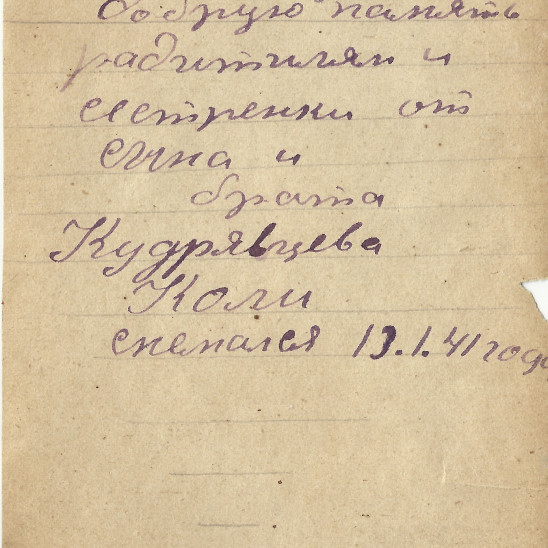 добрую память
радитилям и
сестренки от
сына и
брата
Кудрявцева
Коли
снемался 19.1.41 года